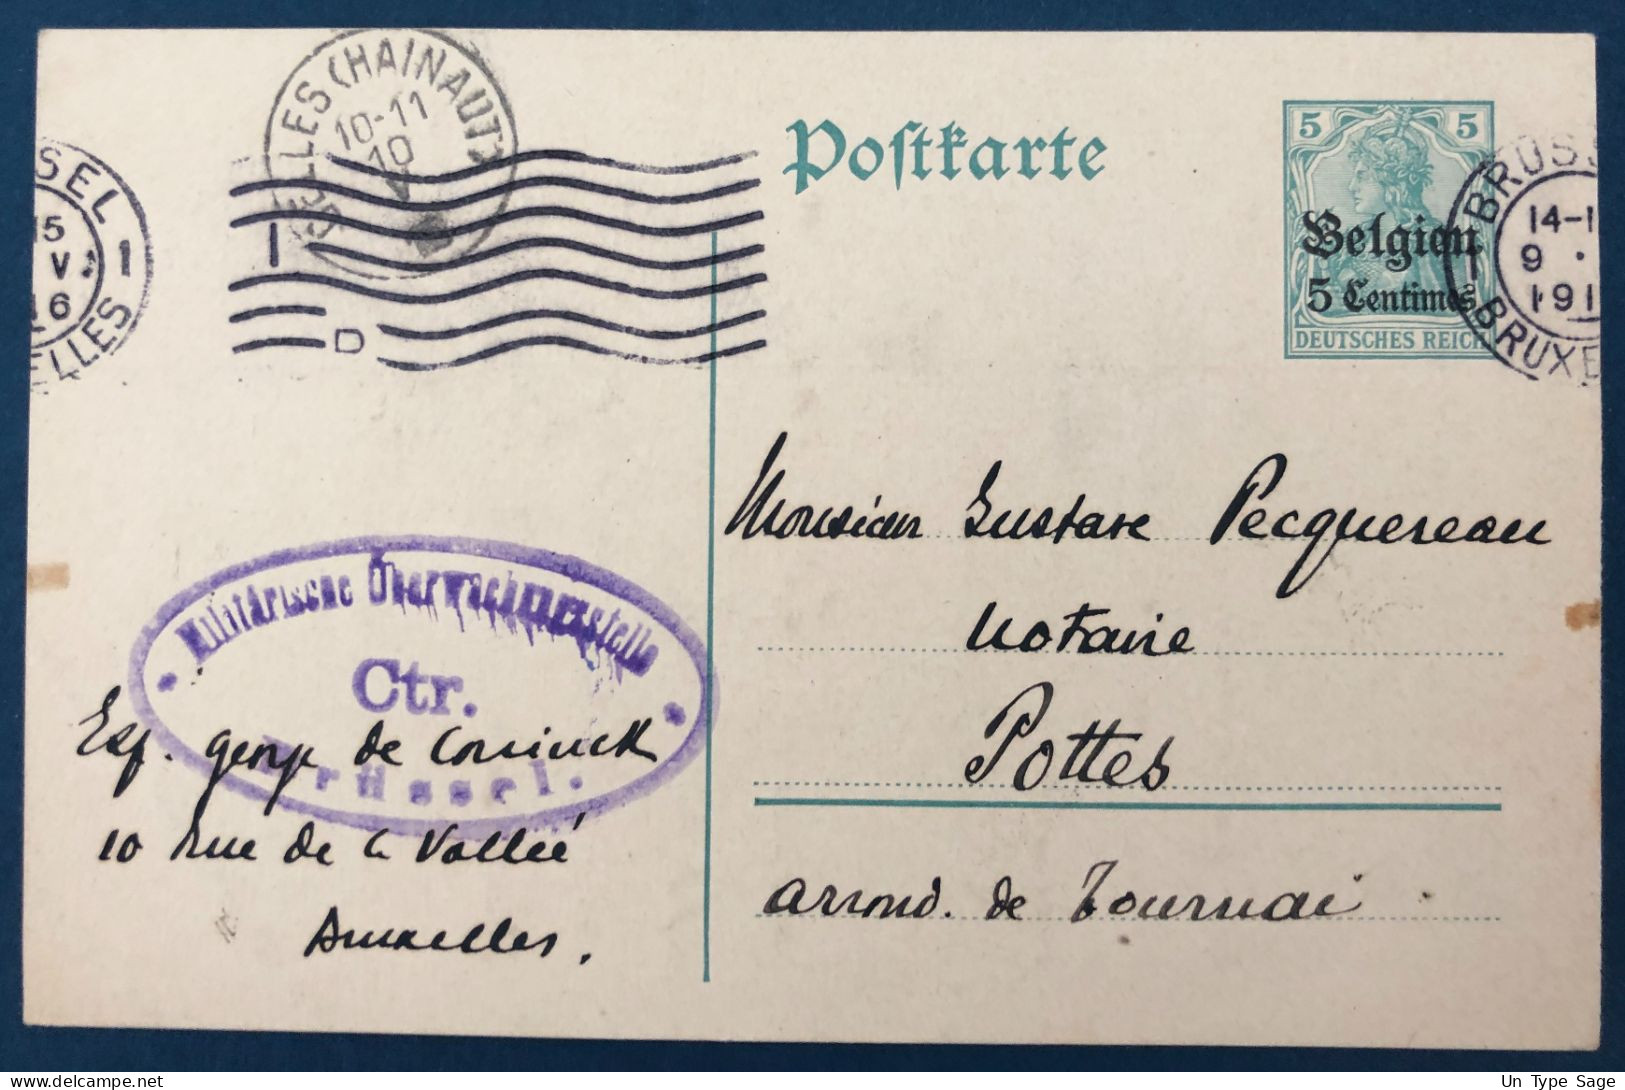 CELLES (HAINAUT)
10-11
10
V
Postkarte
5 5
Belgien
5 Centimes
DEUTSCHES REICH
BRÜSSEL 1
14-15
9 · V
1916
BRUXELLES 1
D
Monsieur Gustave Pecquereau
notaire
Pottes
arrond. de Tournai
Militärische Überwachungsstelle
Ctr.
Brüssel.
Exp. George de
10 rue de la Vallée
Bruxelles.
Un Type Sage